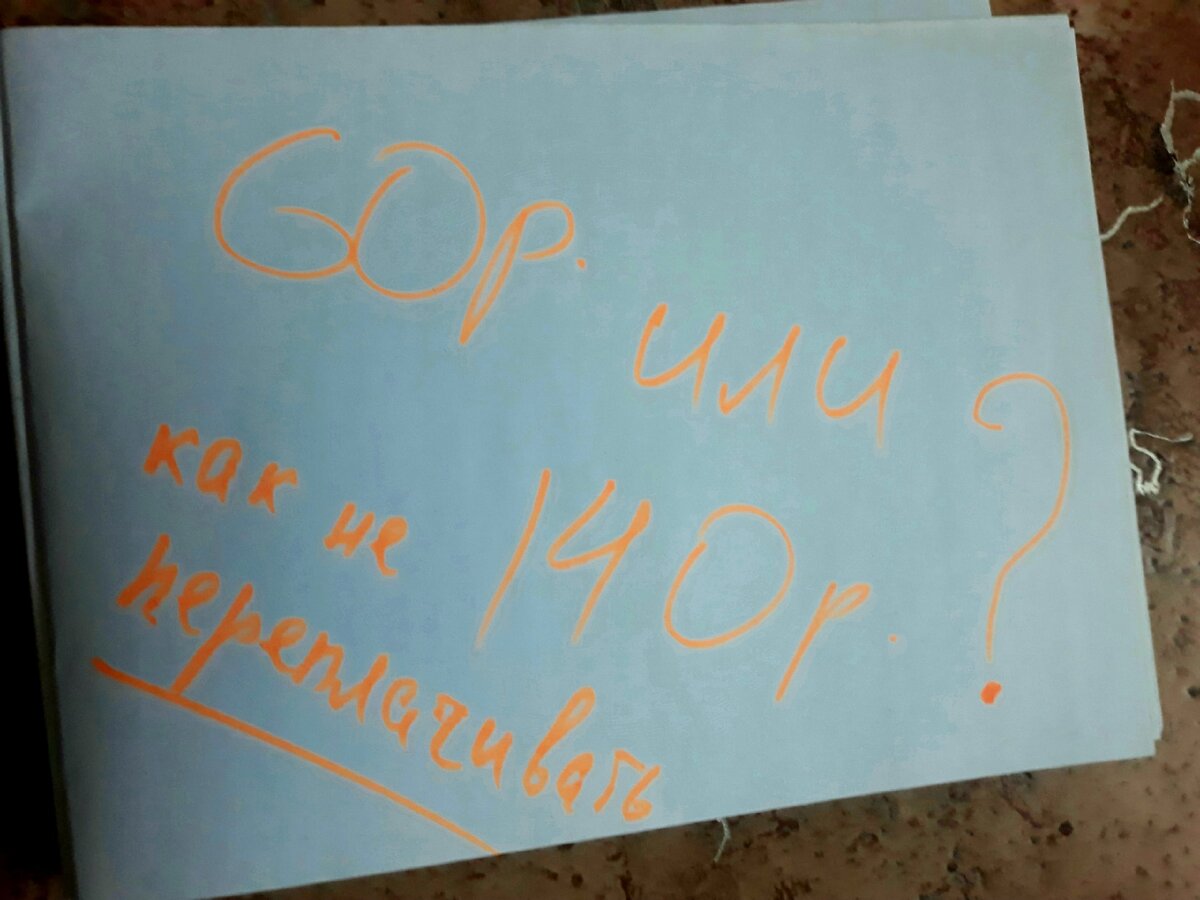 60р. или
140р.?
как не
переплачивать